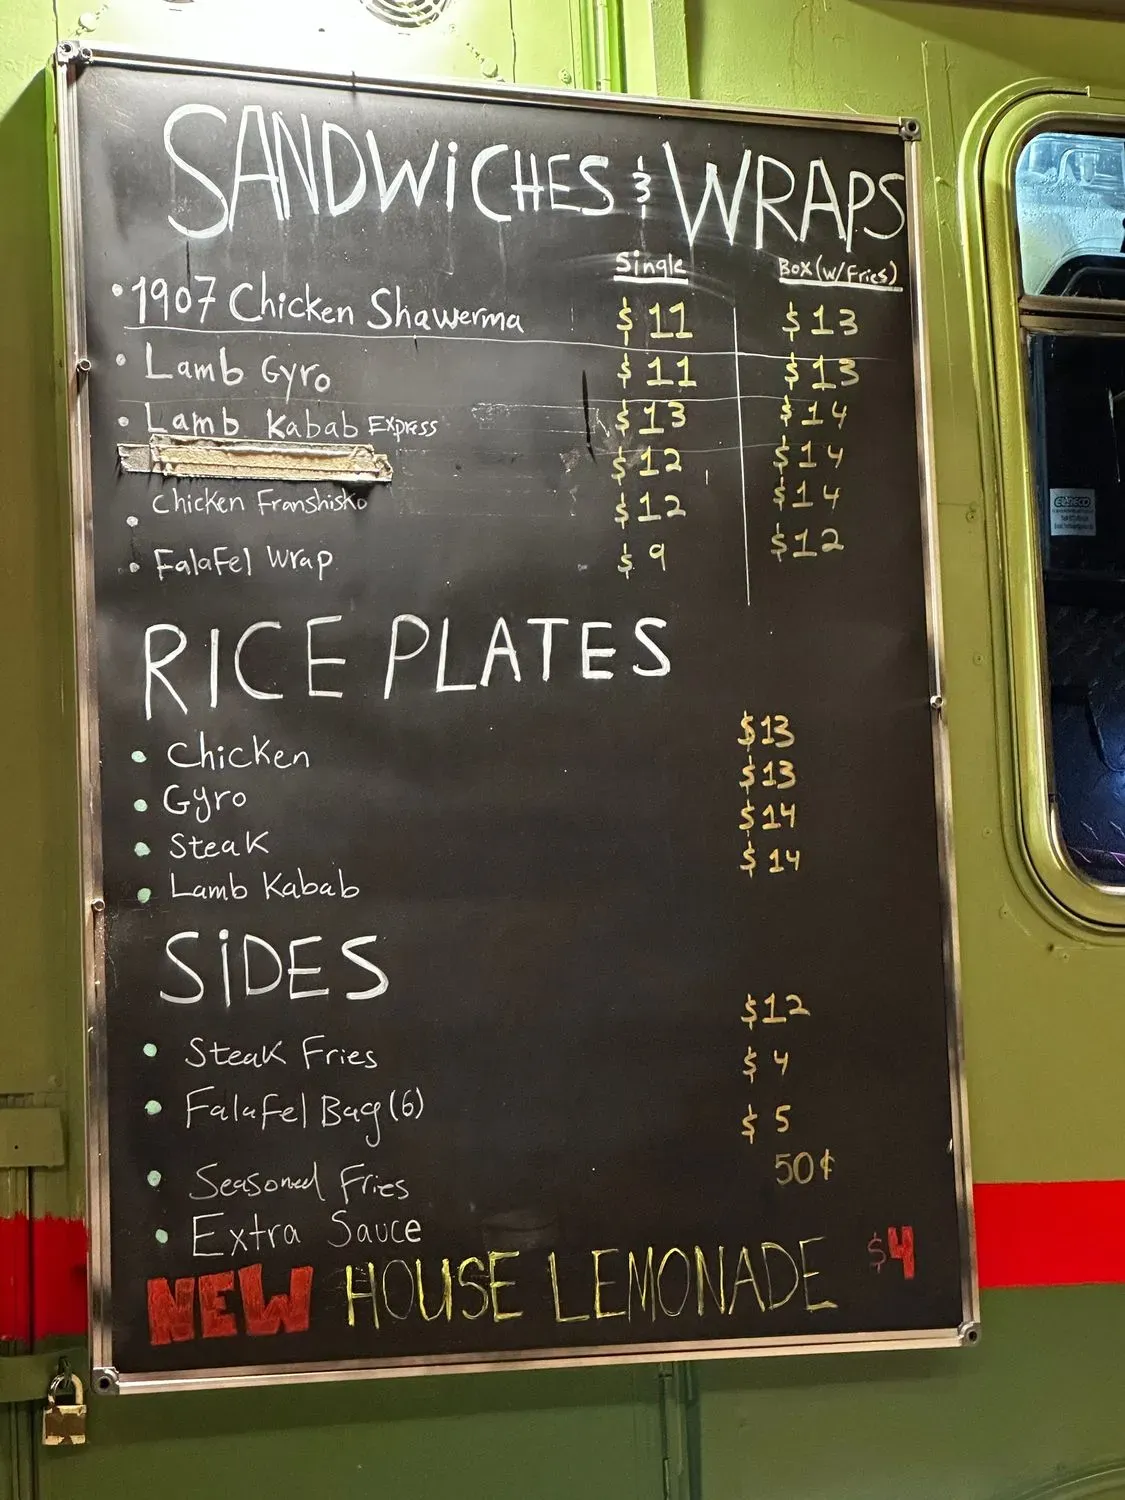 SANDWiCHES & WRAPS
Single Box (w/Fries)
• 1907 Chicken Shawerma $11 $13
• Lamb Gyro $11 $13
• Lamb Kabab Express $13 $14
$12 $14
• Chicken Franshisko $12 $14
• Falafel Wrap $9 $12
RICE PLATES
• Chicken $13
• Gyro $13
• Steak $14
• Lamb Kabab $14
SiDES
• Steak Fries $12
• Falafel Bag (6) $4
• Seasoned Fries $5
• Extra Sauce 50¢
NEW HOUSE LEMONADE $4